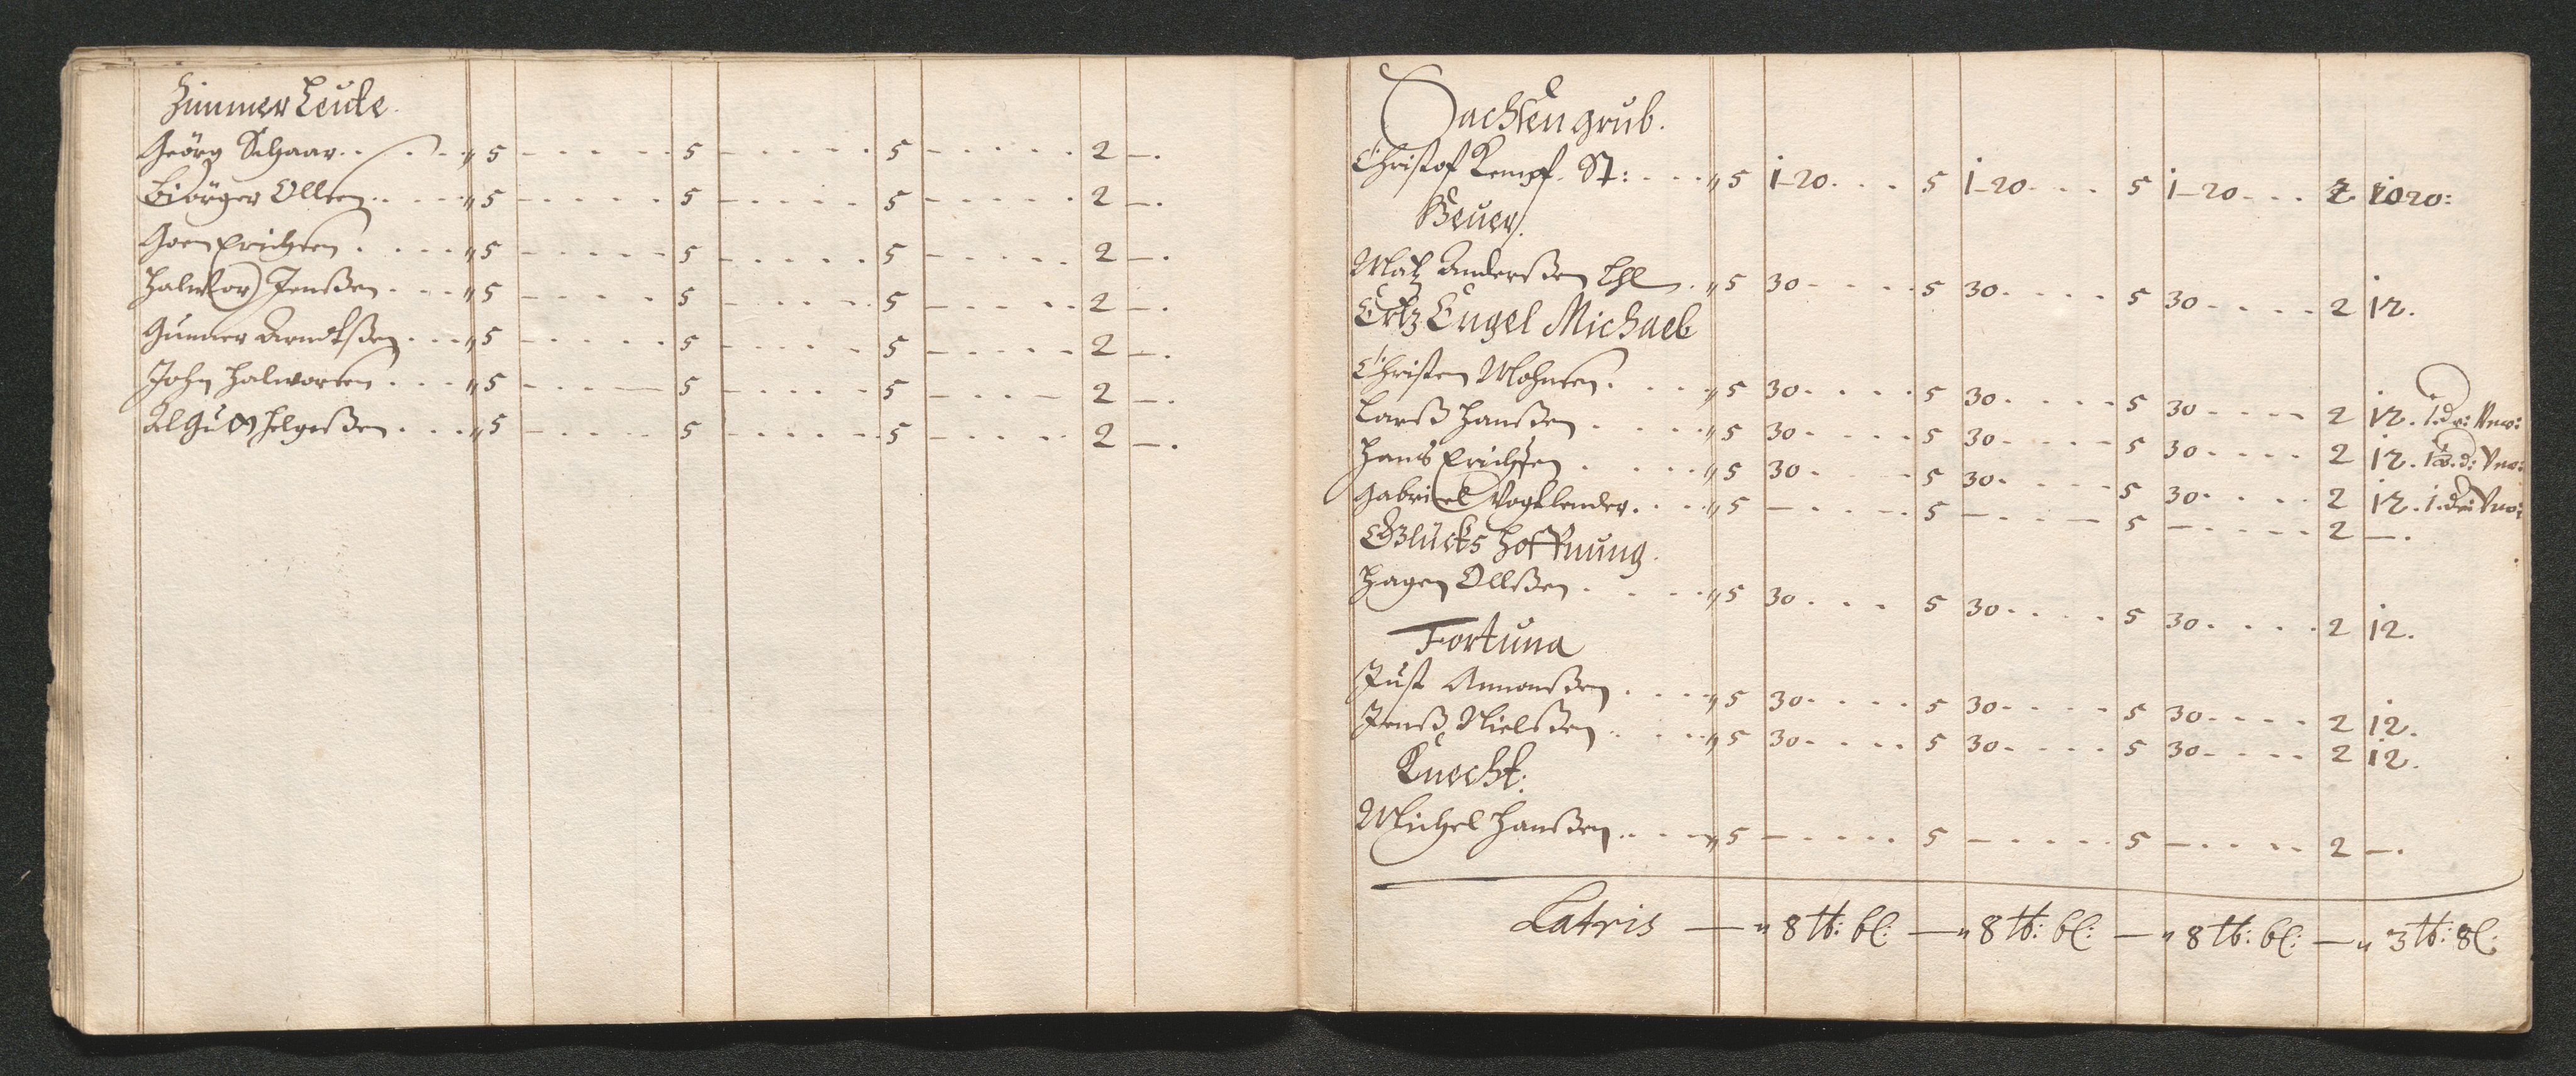 Zimmer Leute.
Geörg Schaar. . . . . „ 5 - - - - - 5 - - - - - 5 - - - - - 2 —.
Biörger Ollsen. . . . „ 5 - - - - - 5 - - - - - 5 - - - - - 2 —.
Goen Erichsen . . . . „ 5 - - - - - 5 - - - - - 5 - - - - - 2 —.
Halwor Jenßen . . . „ 5 - - - - - 5 - - - - - 5 - - - - - 2 —.
Gunner Arndtßen . . . „ 5 - - - - - 5 - - - - - 5 - - - - - 2 —.
John Halworsen . . . „ 5 - - - - - 5 - - - - - 5 - - - - - 2 —.
Helgeßen . . . „ 5 - - - - - 5 - - - - - 5 - - - - - 2 —.
Sachsen grub.
Christof Kempf. St: . . . „ 5 1-20. . . 5 1-20. . . 5 1-20. . . 2 1020:
Heuer.
Matz Anderßen Lhl . „ 5 30. . . . 5 30. . . . 5 30. . . . 2 12.
Ertz Engel Michael
Christen Mohnsen. . . . „ 5 30. . . . 5 30. . . . 5 30. . . . 2 12.
Larß Hanßen . . . . „ 5 30. . . . 5 30. . . . 5 30. . . . 2 12.
Hans Erichsen . . . . „ 5 30. . . . 5 30. . . . 5 30. . . . 2 12.
Gabriel Vogtlender. . . . „ 5 — . . . . 5 — . . . . 5 — . . . . 2 —.
Glücks Hoffnung.
Hagen Ollßen . . . . „ 5 30. . . . 5 30. . . . 5 30. . . . 2 12.
Fortuna
Just Amonßen . . . . „ 5 30. . . . 5 30. . . . 5 30. . . . 2 12.
Jenß Nielßen . . . . „ 5 30. . . . 5 30. . . . 5 30. . . . 2 12.
Knecht:
Michel Hanßen . . . . „ 5 — . . . . 5 — . . . . 5 — . . . . 2 —.
Latris — „ 8 tb: 6l: — „ 8 tb: 6l: — „ 8 tb: 6l: — „ 3 tb: 8l: